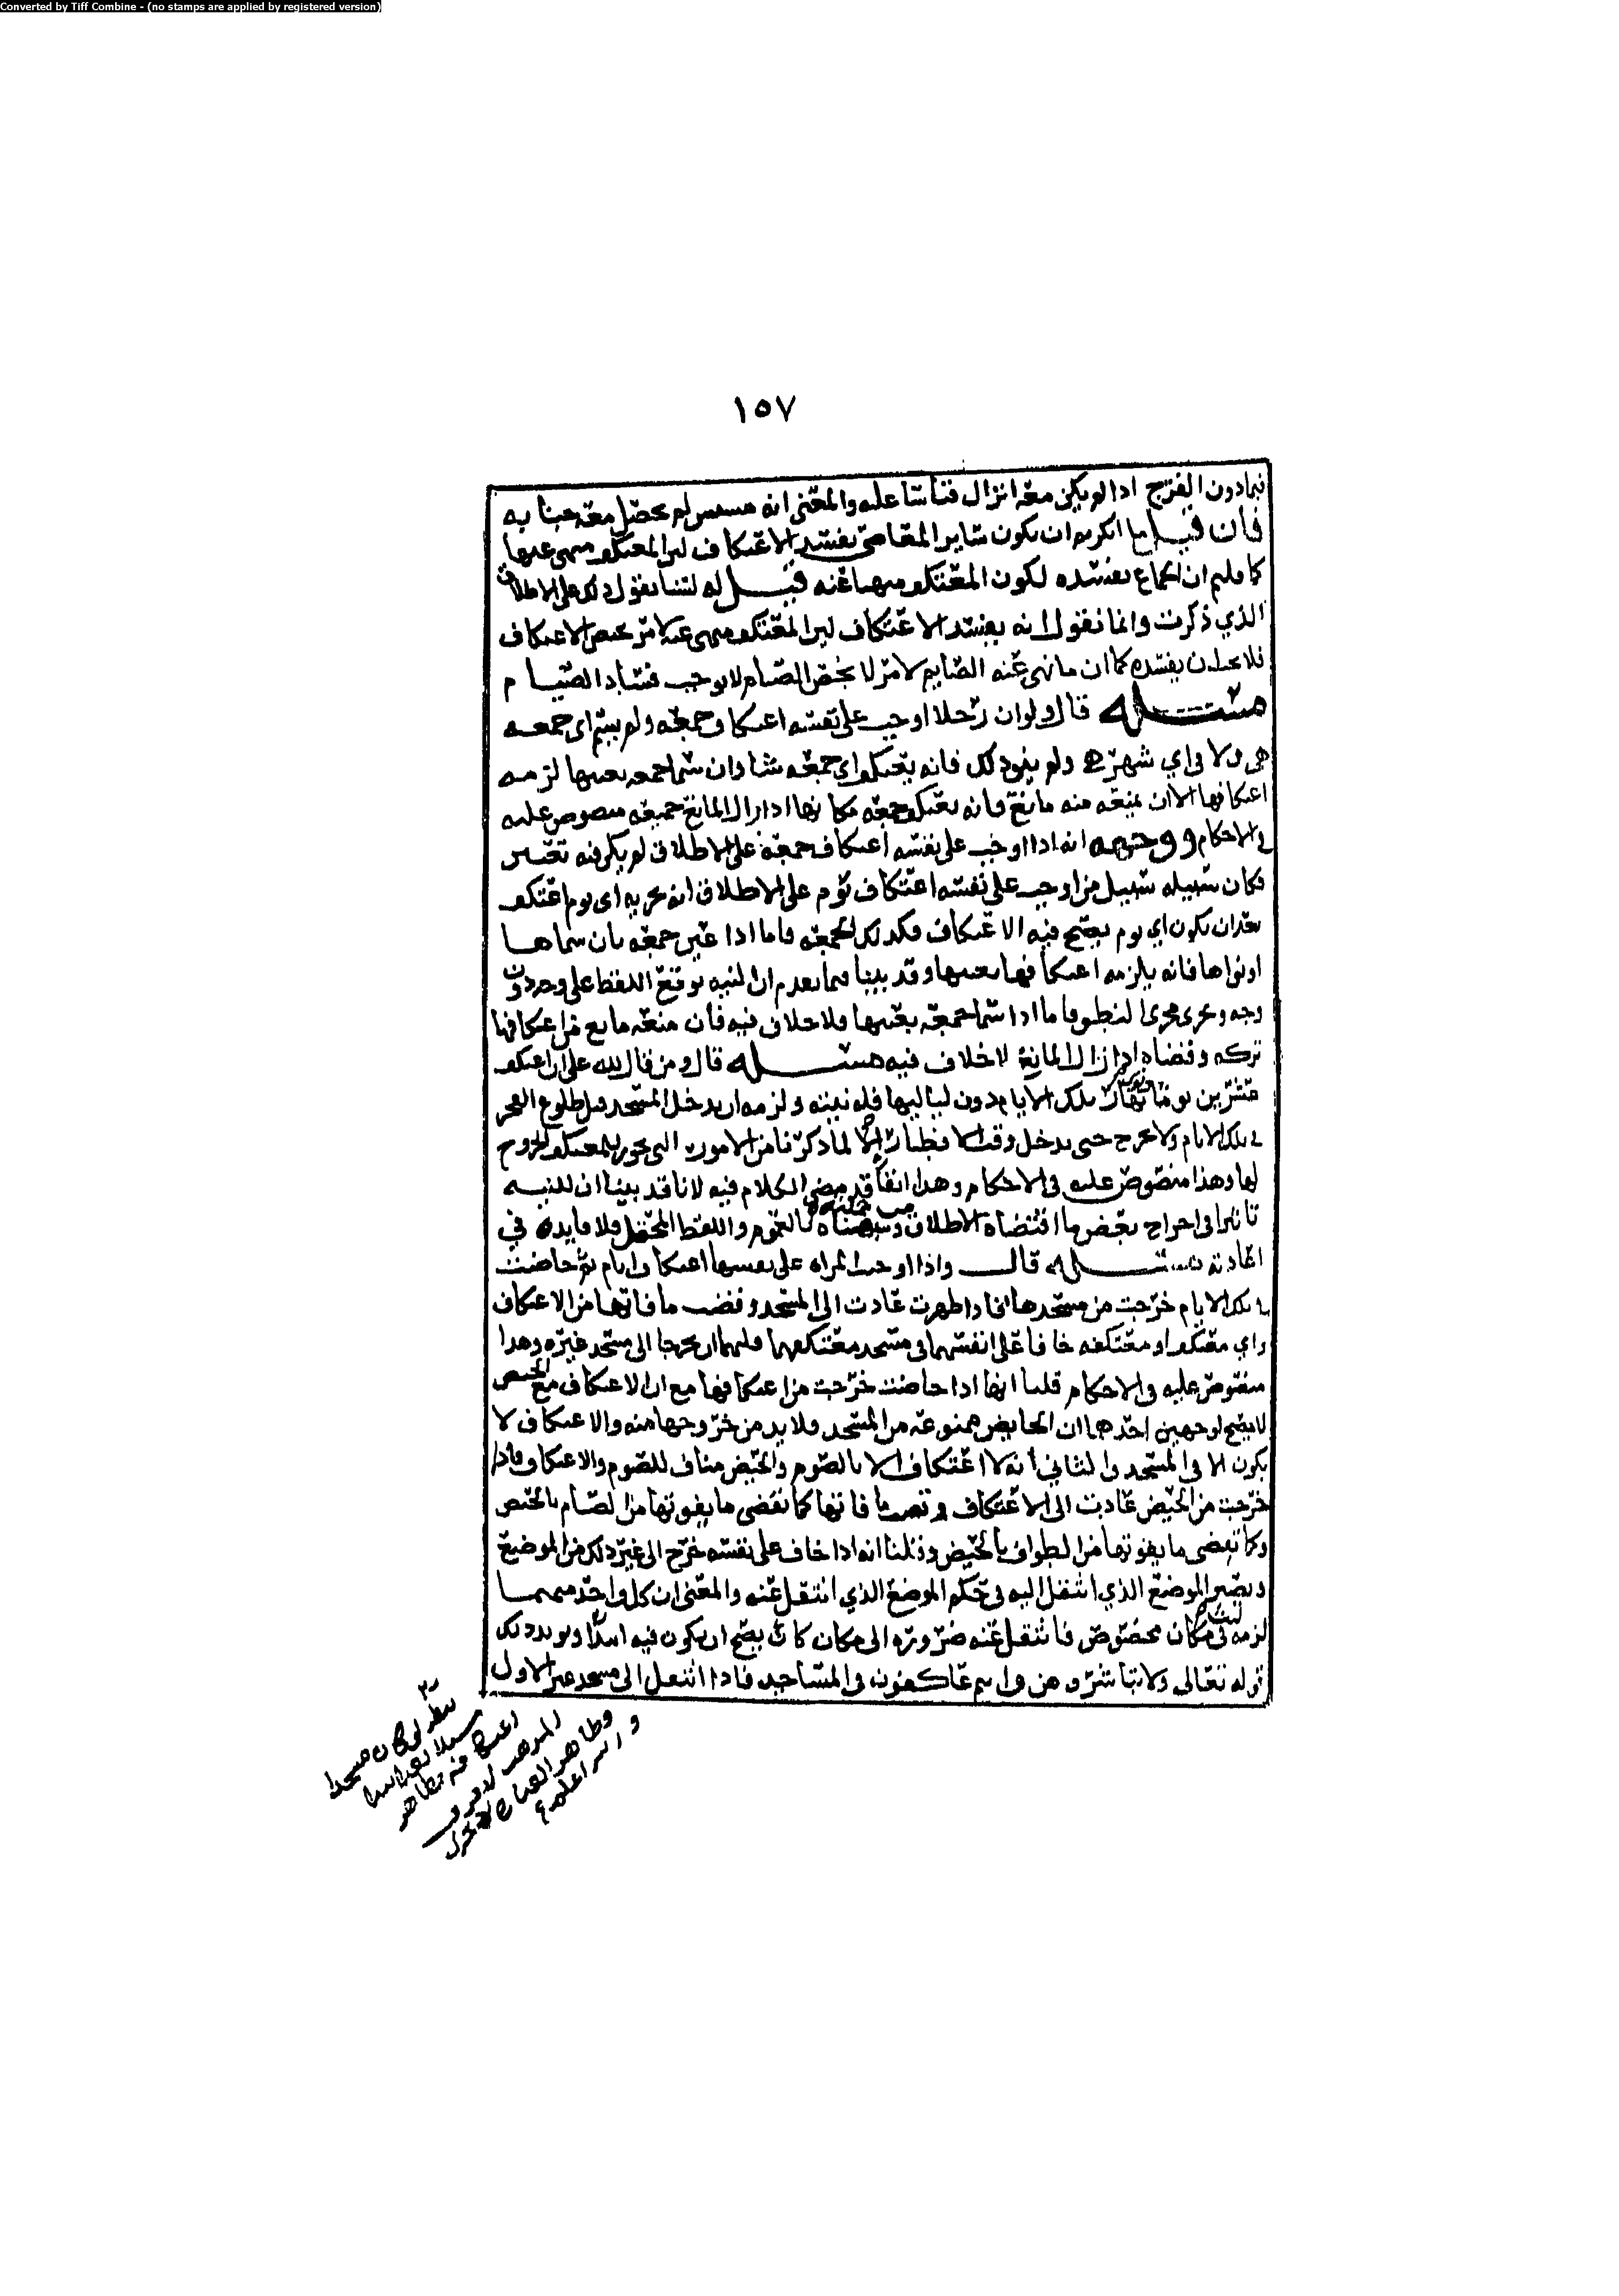 Converted by Tiff Combine - (no stamps are applied by registered version)
١٥٧
فيما دون الفرج اذا لم يكن معه انزال قياسا عليه والمعنى انه مسيس لم يحصل معه جنابه
فان قيل ما انكرتم ان يكون ساير المعاصي يفسد الاعتكاف لان المعتكف منهي عنها
كما قلتم ان الجماع يفسده لكون المعتكف منهيا عنه قيل له لسنا نقول ذلك على الاطلاق
الذي ذكرت وانما نقول انه يفسد الاعتكاف لان المعتكف منهي عنه لامر يخص الاعتكاف
فلا يجب ان يفسده كما ان ما نهي عنه الصايم لامر لا يخص الصيام لا يوجب فساد الصيام
مسئله قال ولو ان رجلا اوجب على نفسه اعتكاف جمعه ولم يسم اي جمعه
هي ولا في اي شهر هي ولم ينو ذلك فانه يعتكف اي جمعه شا وان سما جمعه بعينها لزمه
اعتكافها الا ان يمنعه منه مانع فانه يعتكف جمعه مكانها اذا زال المانع جميعه منصوص عليه
في الاحكام ووجهه انه اذا اوجب على نفسه اعتكاف جمعة على الاطلاق لم يكن فيه تعيين
فكان سبيله سبيل من اوجب على نفسه اعتكاف يوم على الاطلاق انه يجزيه اي يوم اعتكف
بعد ان يكون اي يوم يصح فيه الاعتكاف فكذلك الجمعه فاما اذا عين جمعه بان سماها
او نواها فانه يلزمه اعتكافها بعينها وقد بينا فيما تقدم ان النيه توقع اللفظ على وجه دون
وجه وتجري مجرى النطق فاما اذا سما جمعه بعينها فلا خلاف فيه فان منعه مانع من اعتكافها
تركه وقضاه اذا زال المانع لا خلاف فيه مسئله قال ومن قال لله علي ان اعتكف
عشرين يوما ونوى نهار تلك الايام دون لياليها فله نيته ولزمه ان يدخل المسجد قبل طلوع الفجر
في تلك الايام ولا يخرج حتى يدخل وقت الافطار الا لما ذكرنا من الامور التي يجوز للمعتكف الخروج
لها وهذا منصوص عليه في الاحكام وهذا ايضا قد مضى الكلام فيه لانا قد بينا ان للنيه
تاثيرا في اخراج بعض ما اقتضاه الاطلاق وشبهناه بالعموم واللفظ المحتمل فلا فايده في
اعادته مسئله قال واذا اوجبت المراه على نفسها اعتكاف ايام ثم حاضت
في تلك الايام خرجت من مسجدها فاذا طهرت عادت الى المسجد وقضت ما فاتها من الاعتكاف
واي معتكف او معتكفه خافا على انفسهما في مسجد معتكفهما فلهما ان يخرجا الى مسجد غيره وهذا
منصوص عليه في الاحكام قلنا انها اذا حاضت خرجت من اعتكافها مع ان الاعتكاف مع الحيض
لا يصح لوجهين احدهما ان الحايض ممنوعه من المسجد فلا بد من خروجها منه والاعتكاف لا
يكون الا في المسجد والثاني انه لا اعتكاف الا بالصوم والحيض مناف للصوم والاعتكاف فاذا
خرجت من الحيض عادت الى الاعتكاف وقضت ما فاتها كما تقضي ما يفوتها من الصيام بالحيض
وكما تقضي ما يفوتها من الطواف بالحيض وقلنا انه اذا خاف على نفسه خرج الى غير ذلك من الموضع
ويصير الموضع الذي انتقل اليه في حكم الموضع الذي انتقل عنه والمعنى ان كل واحد منهما
لزمه لبث في مكان مخصوص فانتقل عنه ضرورة الى مكان كان يصح ان يكون فيه ابتدا ويؤيد ذلك
قوله تعالى ولا تباشروهن وانتم عاكفون في المساجد فاذا انتقل الى مسجد غير الاول
والله اعلم